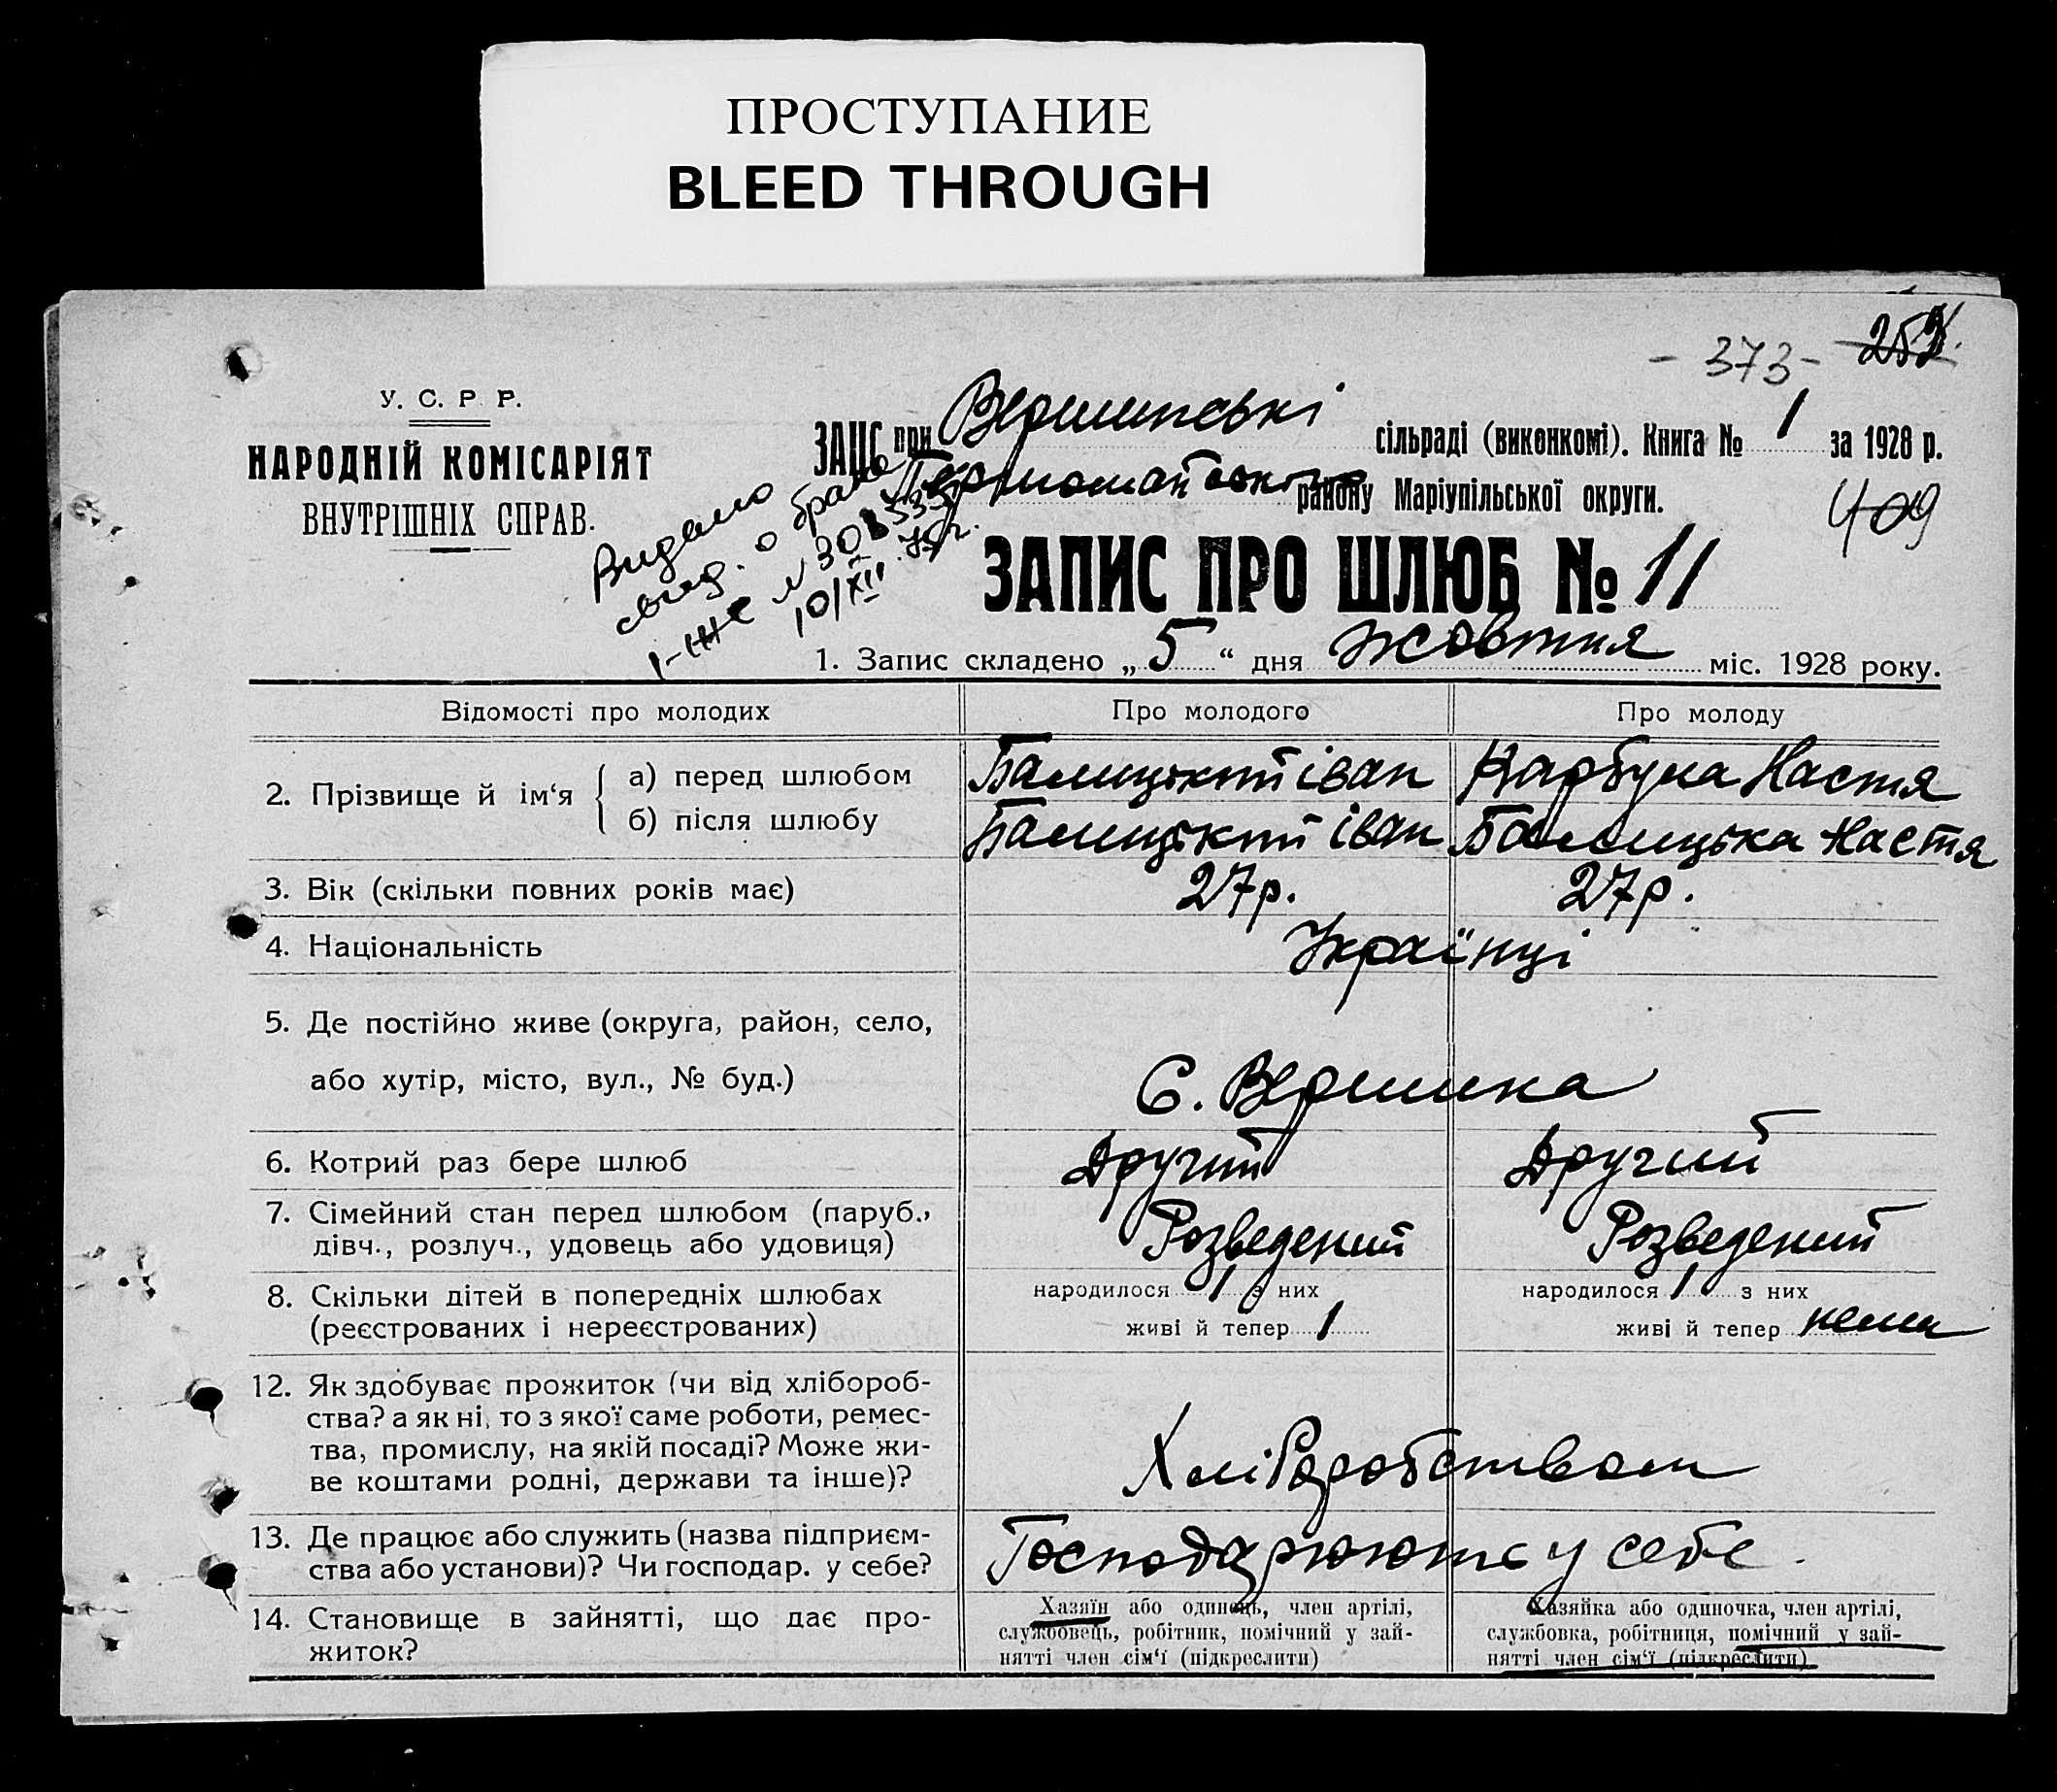 ПРОСТУПАНИЕ
BLEED THROUGH
- 373 -
У. С. Р. Р.
НАРОДНІЙ КОМІСАРІЯТ
ВНУТРІШНІХ СПРАВ.
ЗАЦС при Вершинські сільраді (виконкомі). Книга № 1 за 1928 р.
Першомайського району Маріупільської округи.
409
Видано
свид. о браке
І-ЖС №
10/XII 75г.
ЗАПИС ПРО ШЛЮБ № 11
1. Запис складено „ 5 “ дня жовтня міс. 1928 року.
Відомості про молодих Про молодого Про молоду
2. Прізвище й ім‘я { а) перед шлюбом Балицький іван Карбула Настя
б) після шлюбу Балицький іван Балицька Настя
3. Вік (скільки повних років має) 27р. 27р.
4. Національність Українці
5. Де постійно живе (округа, район, село,
або хутір, місто, вул., № буд.) С. Вершина
6. Котрий раз бере шлюб Другий Другий
7. Сімейний стан перед шлюбом (паруб.,
дівч., розлуч., удовець або удовиця) Розведений Розведений
8. Скільки дітей в попередніх шлюбах народилося 1 з них народилося 1 з них
(реєстрованих і нереєстрованих) живі й тепер 1 живі й тепер нема
12. Як здобуває прожиток (чи від хлібороб-
ства? а як ні, то з якої саме роботи, ремес-
тва, промислу, на якій посаді? Може жи-
ве коштами родні, держави та інше)? Хліборобством
13. Де працює або служить (назва підприєм-
ства або установи)? Чи господар. у себе? Господарюють у себе.
14. Становище в зайнятті, що дає про-
житок?
Хазяїн або одинець, член артілі,
службовець, робітник, помічний у зай-
нятті член сім‘ї (підкреслити)
Хазяйка або одиночка, член артілі,
службовка, робітниця, помічний у зай-
нятті член сім‘ї (підкреслити)